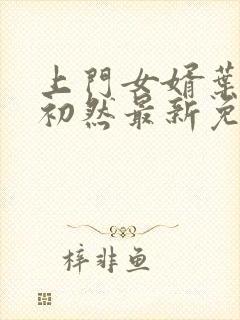 上門女婿葉
初然最新免
梓非鱼